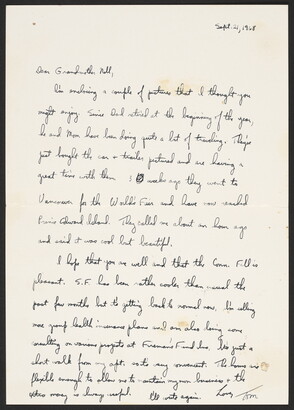 Sept. 21, 1968
Dear Grandmother Hill,
I'm enclosing a couple of pictures that I thought you
might enjoy. Since Dad retired at the beginning of the year,
he and Mom have been doing quite a lot of traveling. They've
just bought the car & trailer pictured and are having a
great time with them. weeks ago they went to
Vancouver for the World's Fair and have now reached
Prince Edward Island. They called me about an hour ago
and said it was cool but beautiful.
I hope that you are well and that the Conn. Fall is
pleasant. S.F. has been rather cooler than usual the
past few months but is getting back to normal now. I'm selling
some group health insurance plans and am also doing some
consulting on various projects at Fireman's Fund Ins. It's just a
short walk from my apt. so its very convenient. The hours are
flexible enough to allow me to maintain my own business & the
extra money is always useful. I'll write again. Love, Tom